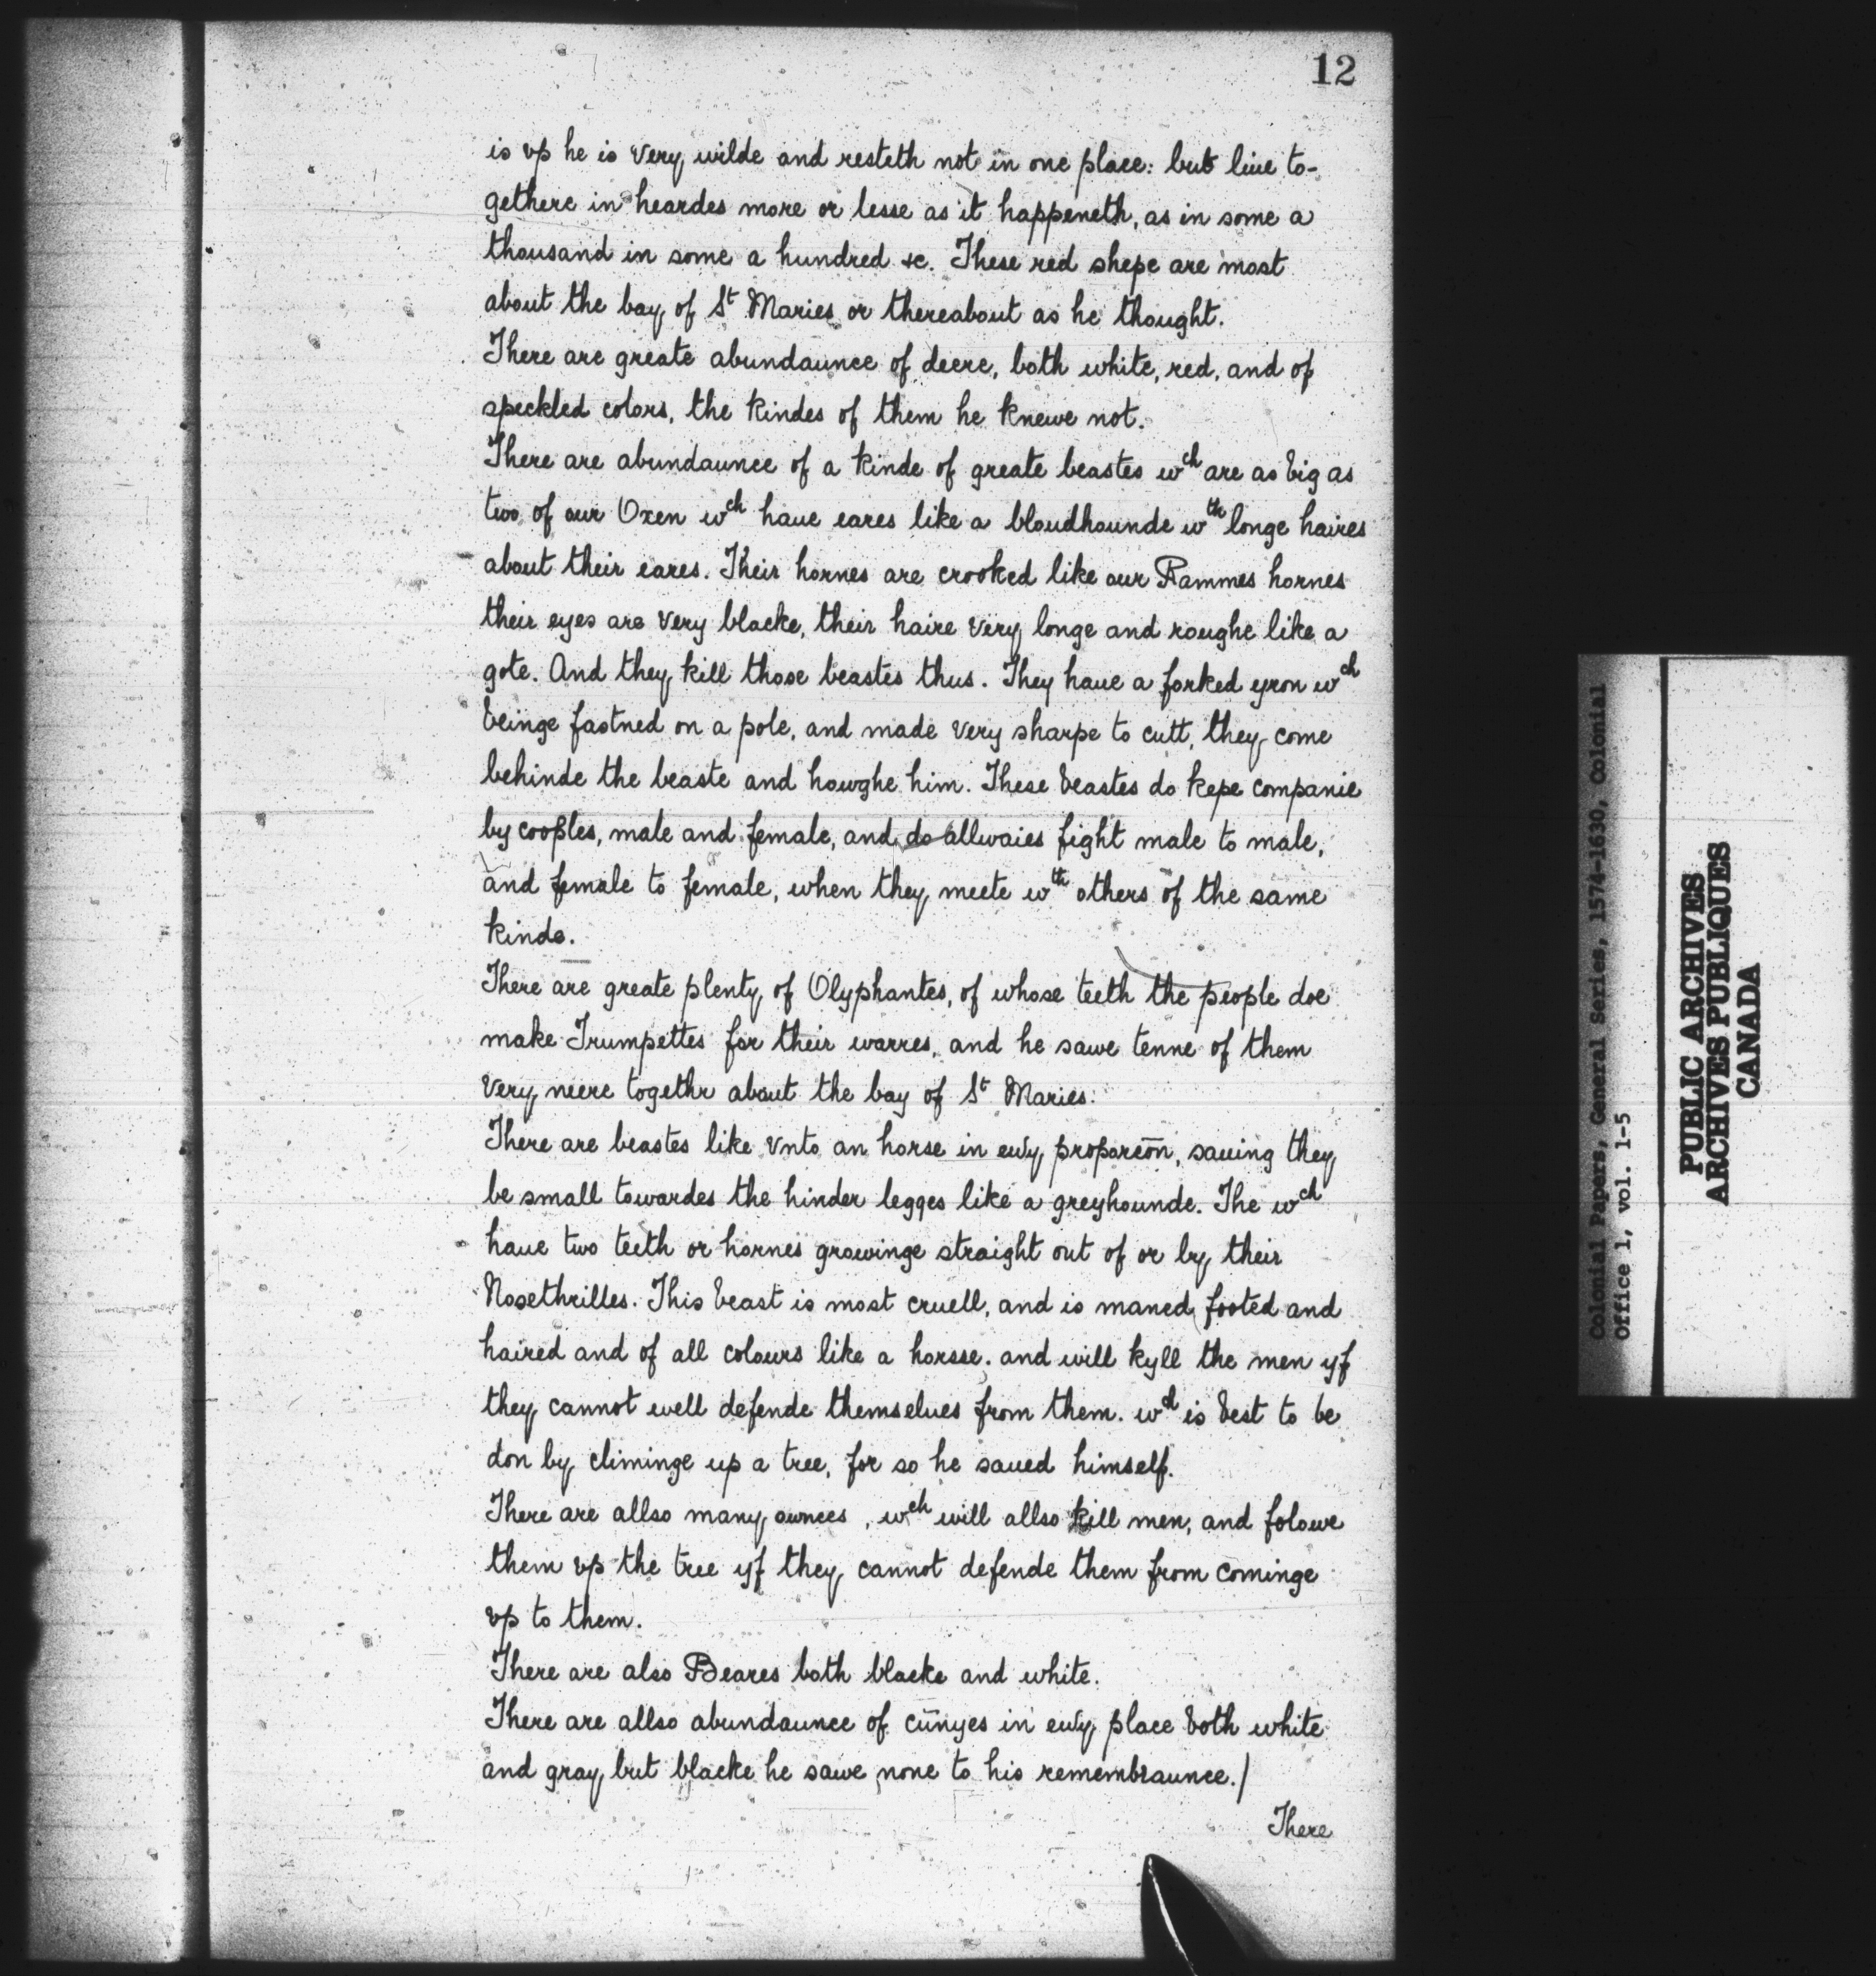 12
is vp he is very wilde and resteth not in one place: but liue to-
gethere in heardes more or lesse as it happeneth, as in some a
thousand in some a hundred &c. These red shepe are most
about the bay of St Maries or thereabout as he thought.
There are greate abundaunce of deere, both white, red, and of
speckled colors, the kindes of them he knewe not.
There are abundaunce of a kinde of greate beastes wch are as big as
two of our Oxen wch haue eares like a bloudhounde wth longe haires
about their eares. Their hornes are crooked like our Rammes hornes
their eyes are very blacke, their haire very longe and roughe like a
gote. And they kill those beastes thus. They haue a forked yron wch
beinge fastned on a pole, and made very sharpe to cutt, they come
behinde the beaste and howghe him. These beastes do kepe companie
by cooples, male and female, and do allwaies fight male to male,
and female to female, when they meete wth others of the same
kinde.
There are greate plenty of Olyphantes, of whose teeth the people doe
make Trumpettes for their warres, and he sawe tenne of them
very neere togethr about the bay of St Maries.
There are beastes like vnto an horse in eu'y proporc̄on, sauing they
be small towardes the hinder legges like a greyhounde. The wch
haue two teeth or hornes growinge straight out of or by their
Nosethrilles. This beast is most cruell, and is maned, footed and
haired and of all colours like a horsse. and will kyll the men yf
they cannot well defende themselues from them. wch is best to be
don by climinge up a tree, for so he saued himself.
There are allso many ownces, wch will allso kill men, and folowe
them vp the tree yf they cannot defende them from cominge
vp to them.
There are also Beares both blacke and white.
There are allso abundaunce of cūnyes in eu'y place both white
and gray, but blacke he sawe none to his remembraunce./
There
Colonial Papers, General Series, 1574-1630, Colonial
Office 1, vol. 1-5
PUBLIC ARCHIVES
ARCHIVES PUBLIQUES
CANADA